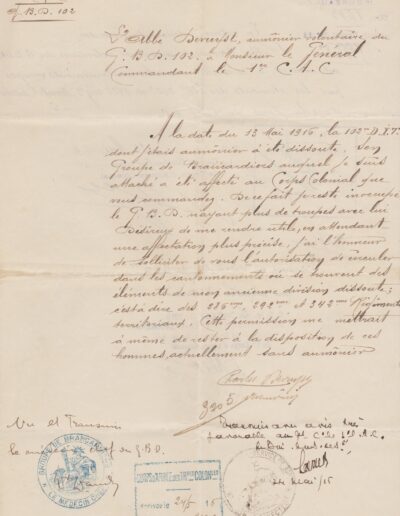 G.B.D. 102
L'Abbé aumônier volontaire du
G.B.D. 102. à Monsieur le Général
Commandant le 1er C.A.C
A la date du 13 Mai 1916, la 102e D.I.T.
dont j'étais aumônier a été dissoute. Son
Groupe de Brancardiers auquel je suis
attaché a été affecté au Corps Colonial que
vous commandez. De ce fait je reste inoccupé
le G.B.D. n'ayant plus de troupes avec lui
Désireux de me rendre utile, en attendant
une affectation plus précise, j'ai l'honneur
de solliciter de vous l'autorisation de circuler
dans les cantonnements où se trouvent des
éléments de mon ancienne division dissoute;
c'est à dire des 292eme et 342eme Régiments
territoriaux. Cette permission me mettrait
à même de rester à la disposition de ces
hommes, actuellement sans aumônier
Charles
aumônier
Vu et Transmis
le chef du G.B.D.
GROUPE DE BRANCARDIERS
LE MEDECIN CHEF
CORPS D'ARMÉE DES TR COLON
24/5 16
Transmis avis très
favorable au C.A.C.
24 Mai/16